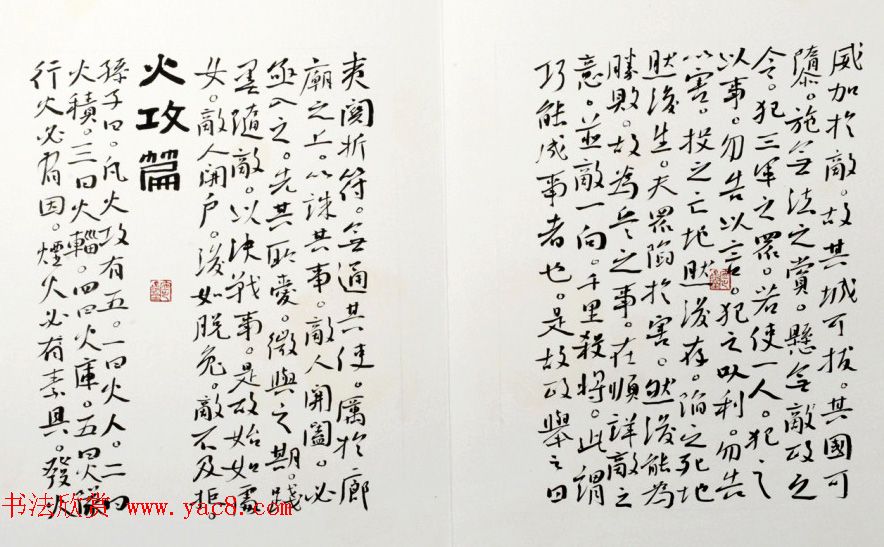 威加於敵。故其城可拔。其國可
隳。施無法之賞。懸無敵政之
令。犯三軍之眾。若使一人。犯之
以事。勿告以言。犯之以利。勿告
以害。投之亡地然後存。陷之死地
然後生。夫眾陷於害。然後能為
勝敗。故為兵之事。在順詳敵之
意。並敵一向。千里殺將。此謂
巧能成事者也。是故政舉之日
夷關折符。無通其使。厲於廊
廟之上。以誅其事。敵人開闔。必
亟入之。先其所愛。微與之期。踐
墨隨敵。以決戰事。是故始如處
女。敵人開戶。後如脫兔。敵不及拒。
火攻篇
孫子曰。凡火攻有五。一曰火人。二曰
火積。三曰火輜。四曰火庫。五曰火隊
行火必有因。煙火必有素具。發火
书法欣赏 www.yac8.com